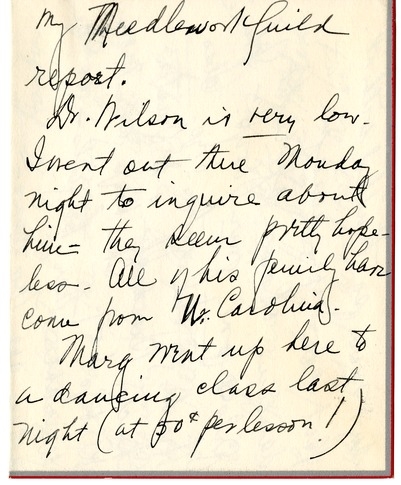 my Needlework Guild
report.
Dr. Wilson is very low.
I went out there Monday
night to inquire about
him - they seem pretty hope-
less - All of his family have
come from No. Carolina.
Marg went up here to
a dancing class last
night (at 50¢ per lesson!)